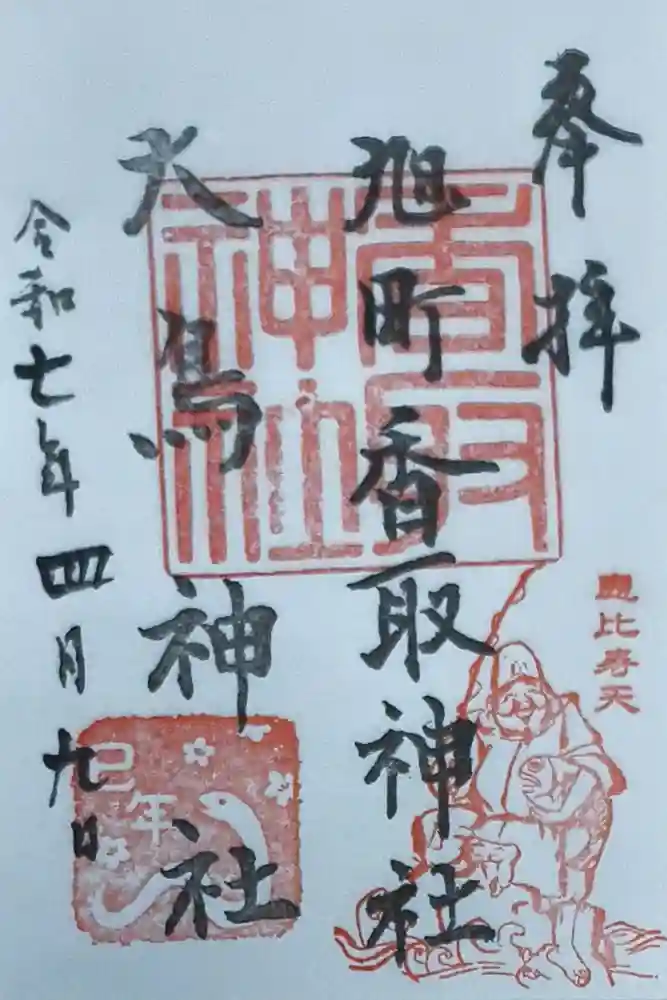 奉拝
旭町香取神社
大鳥神社
令和七年四月九日
香取
神社
恵比寿天
巳年